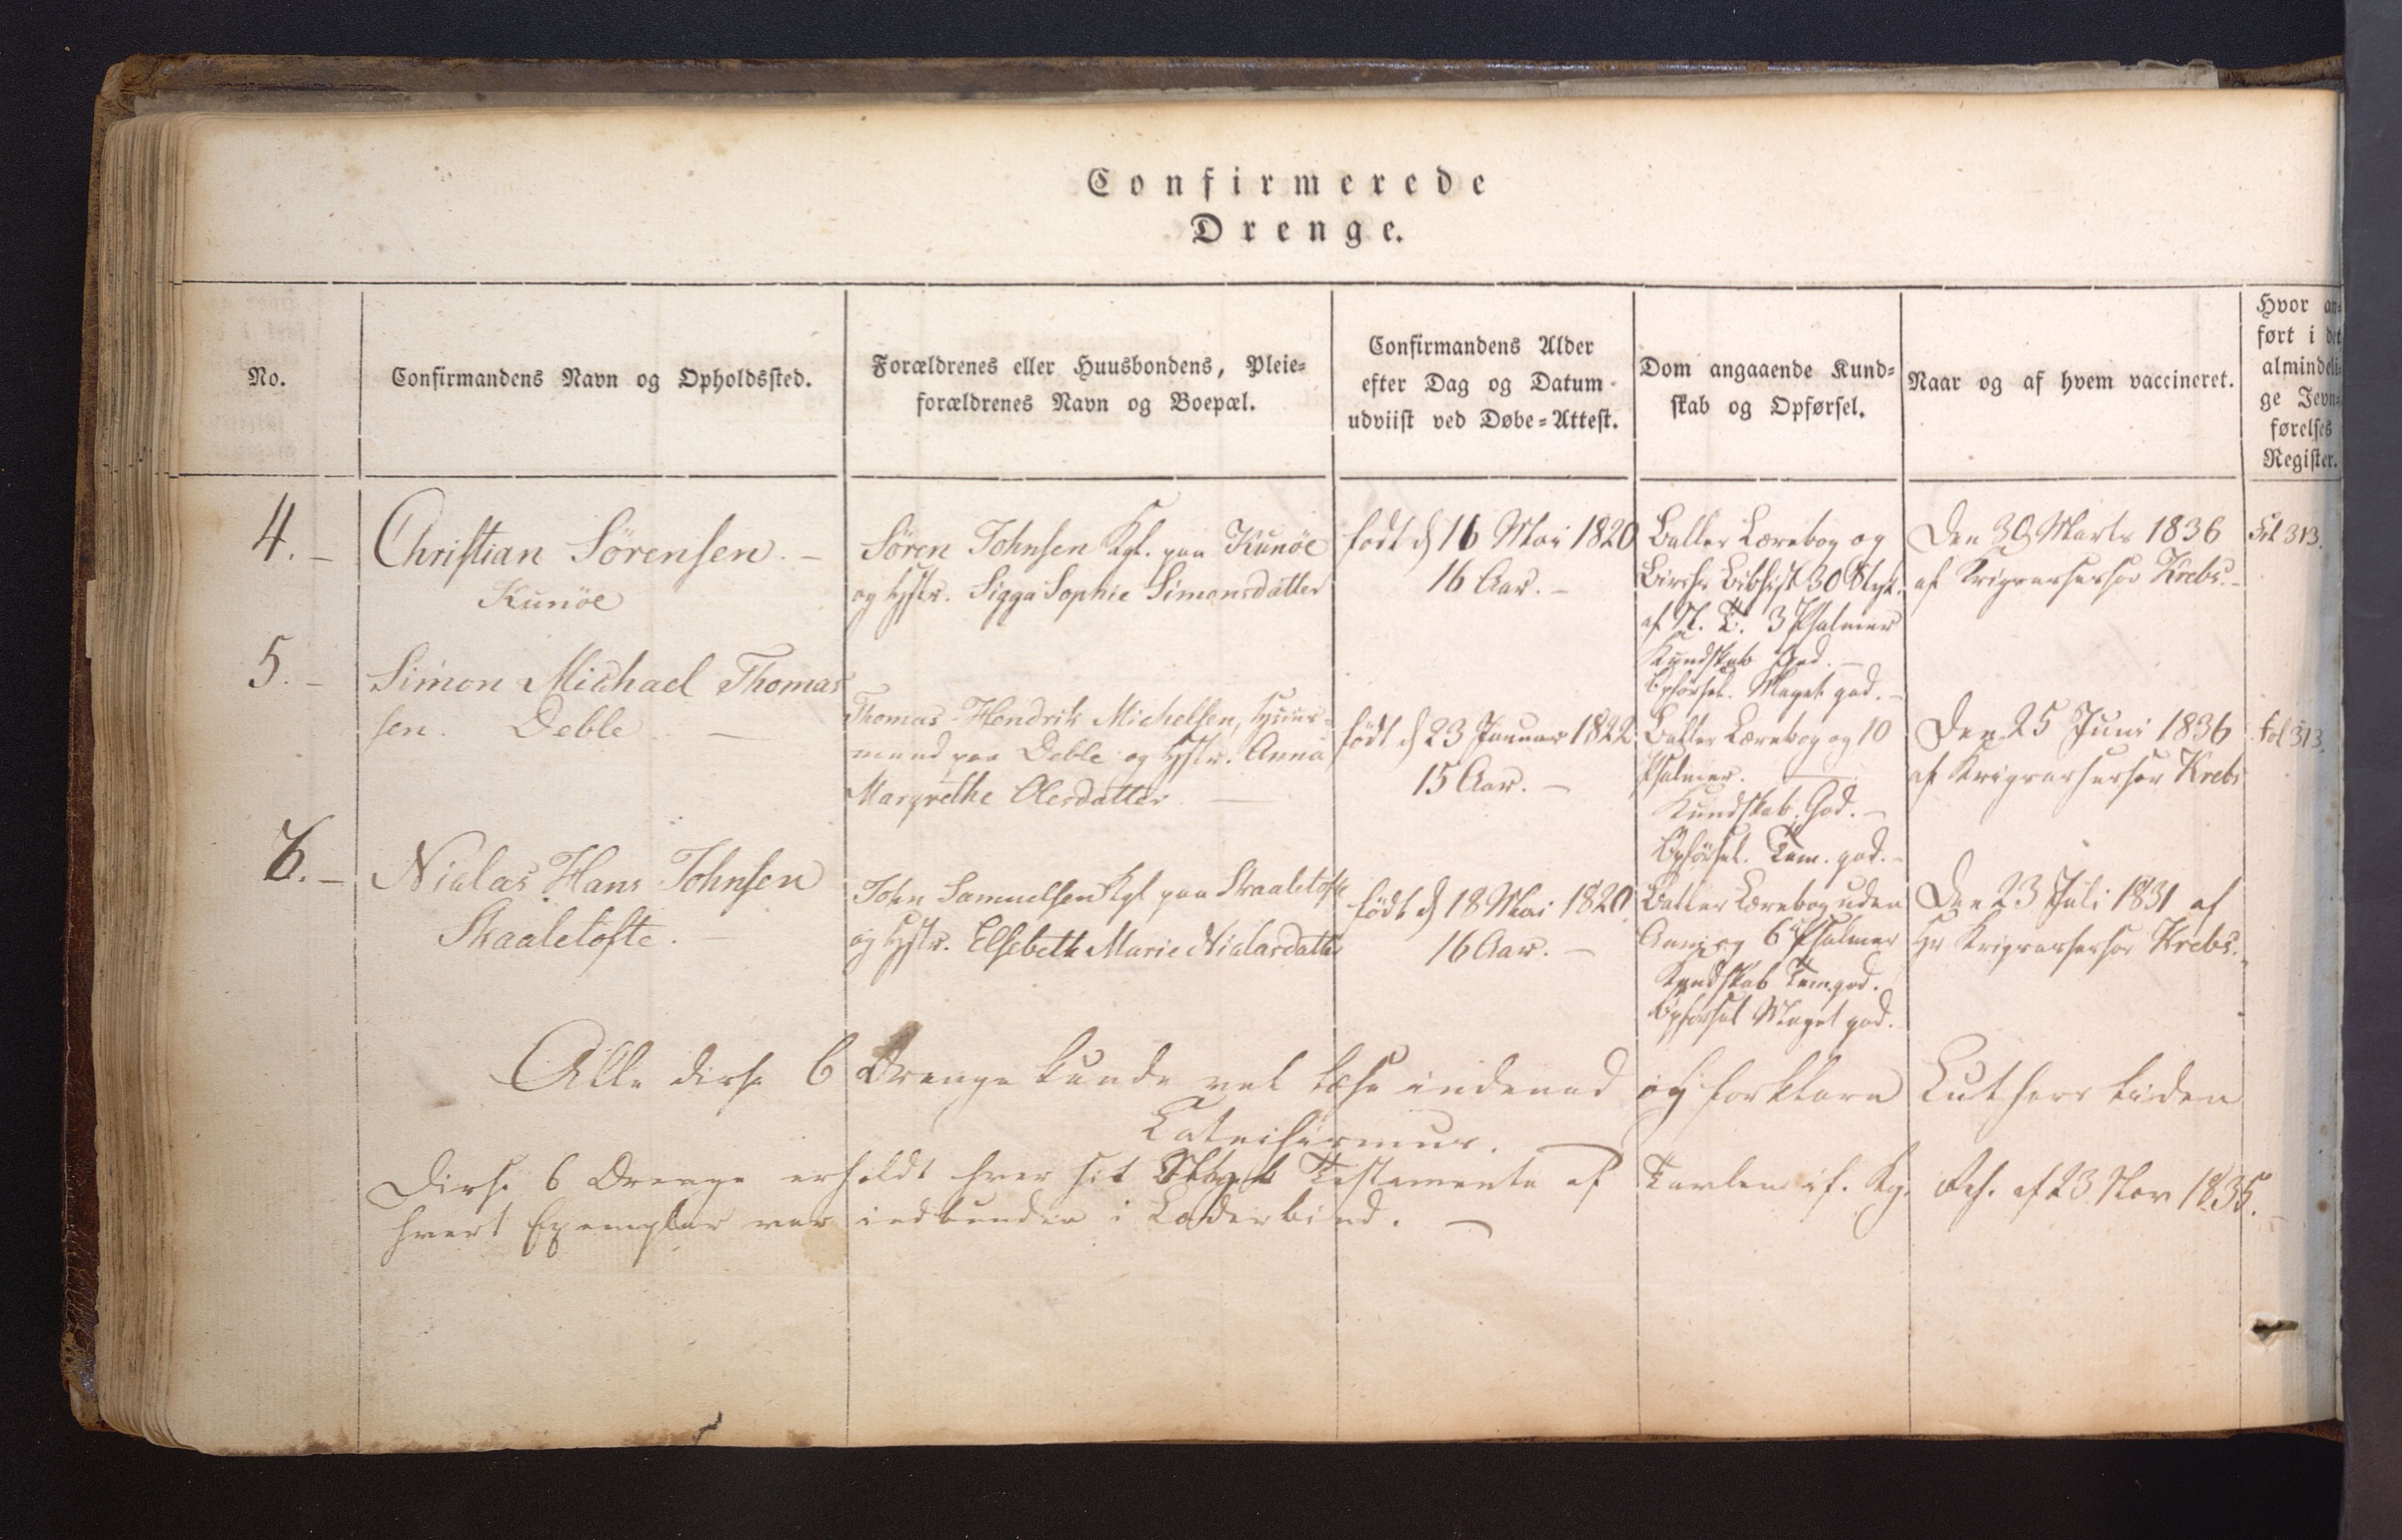 Confirmerede
Drenge.
No.
Confirmandens Navn og Opholdssted.
Forældrenes eller Huusbondens, Pleie=
forældrenes Navn og Boepæl.
Confirmandens Alder
efter Dag og Datum
udviist ved Døbe=Attest.
Dom angaaende Kund=
skab og Opførsel.
Naar og af hvem vaccineret.
Hvor an=
ført i det
almindeli=
ge Jevn=
førelses
Register.
4.-
Christian Sörensen. -
Kunöe
Sören Johnsen Kgl. paa Kunöe
og Hstr. Sigga Sophie Simonsdatter
født d 16 Mai 1820
16 Aar. -
Balles Lærebog og
Birchs Bibhist 30 Styk.
af N. T. 3 Psalmer
Kundskab God. -
Opførsel. Meget god. -
Den 30 Marts 1836
af Krebs. -
Fol 313.
5.-
Simon Michael Thomas
sen. Deble. -
Thomas Hendrik Michelsen, Huus=
mand paa Deble og Hstr. Anna
Margrethe Olesdatter. -
født d 23 Januar 1822
15 Aar. -
Balles Lærebog og 10
Psalmer. -
Kundskab. God. -
Opførsel. Tem. god. -
Den 25 Juni 1836
af Krebs
Fol 313.
6.-
Nielas Hans Johnsen
Skaaletofte. -
John Samuelsen Kgl paa Skaaletofte
og Hstr. Elsebeth Marie Nielasdatter
født d 18 Mai 1820.
16 Aar. -
Balles Lærebog uden
Anm. og 6 Psalmer
Kundskab Tem. god.
Opførsel Meget god.
Den 23 Juli 1831 af
Hr Krebs.
Alle disse 6 Drenge kunde vel læse indenad og forklare Luthers liden
Catechismus.
Disse 6 Drenge erholdt hver sit Testamente af if. Kg. Res. af 23 Nov 1835. -
hvert Exemplar var indbunden i Læderbind. -